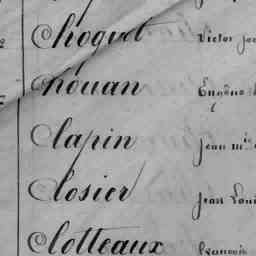 Choquet Victor
Chouan Eugène
Clapin Jean M
Closier Jean Loui
Clotteaux François